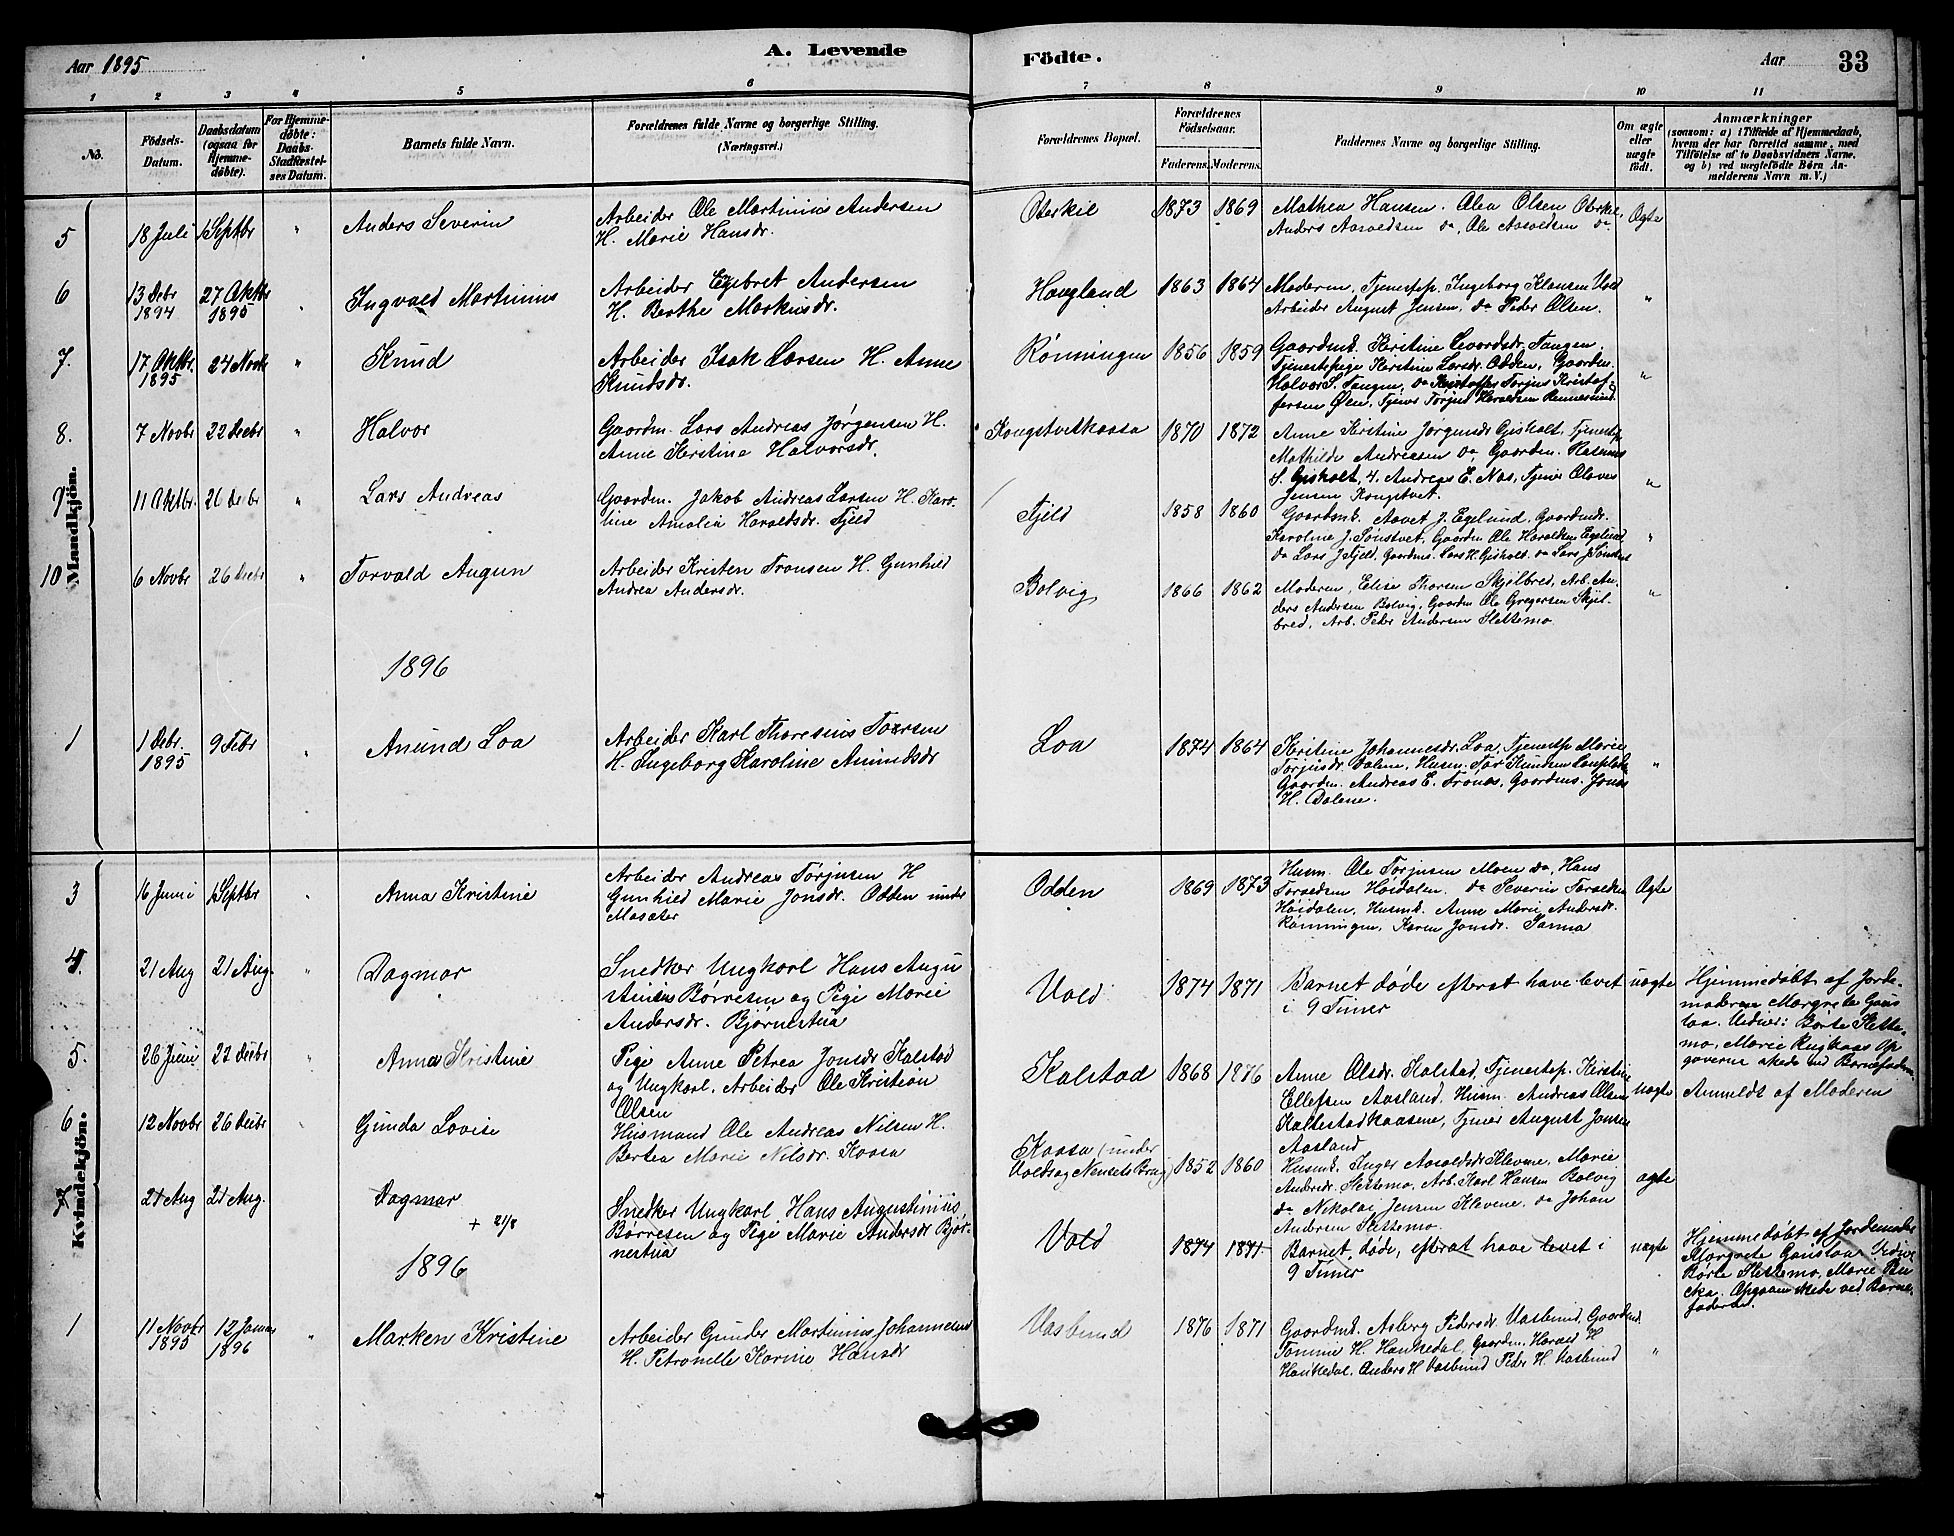 Aar 1895
A. Levende
Födte.
Aar
33
1
2
3
4
5
6
7
8
9
10
11
No.
Födsels-
Datum.
Daabsdatum
(ogsaa for
Hjemme-
døbte).
For Hjemme-
døbte:
Daabs-
Stadfæstel-
ses Datum.
Barnets fulde Navn.
Forældrenes fulde Navne og borgerlige Stilling.
(Næringsvei.)
Forældrenes Bopæl.
Forældrenes
Födselsaar.
Faderens.
Moderens.
Faddernes Navne og borgerlige Stilling.
Om ægte
eller
uægte
födt.
Anmærkninger
(saasom: a) i Tilfælde af Hjemmedaab,
hvem der har forrettet samme, med
Tilföielse af to Daabsvidners Navne,
og b) ved uægtefödte Børn An-
melderens Navn m. V.)
Mandkjön.
5
18 Juli
1 Septbr
"
Anders Severin
Arbeider Ole Martinius Andersen
H. Marie Hansdr.
Oterkil
1873
1869
Mathea Hansen. Alea Olsen Oterkil,
Anders Aasoldsen do, Ole Aasoldsen do
Ægte
6
13 Debr
1894
27 Oktbr
1895
"
Ingvald Martinius
Arbeider Egebret Andersen
H. Berthe Markusdr.
Haugland
1863
1864
Moderen, Tjenestep. Ingeborg Klausen Vold
Arbeider August Jensen, do Peder Olsen.
"
7.
17 Oktbr.
1895
24 Novbr
"
Knud
Arbeider Isak Larsen H. Anne
Knudsdr.
Rönningen
1856
1859
Gaardmk. Kirstine Evardsdr. Tangen,
Tjenestepige Kirstine Larsdr. Odden, Gaardm.
Halvor S. Tangen, do Torjus Kristof-
fersen Ølen, Tjener Torjus Haraldsen
"
8.
7 Novbr
22 Decbr
"
Halvor
Gaardm. Lars Andreas Jørgensen H.
Anne Kerstine Halvorsdr.
Kongstvetkaasa
1870
1872
Anne Kerstine Jørgensdr Gisholt, Tjenestep
Mathilde Andreasen do Gaardm. Rasmus
S. Gisholt, 4, Andreas E. Nas, Tjener Olaves
Jensen Kongstvet.
"
9
11 Oktbr.
26 Debr
"
Lars Andreas
Gaardm. Jakob Andreas Larsen H. Karo-
line Amalia Haraldsdr. Fjeld
Fjeld
1858
1860
Gaardmk. Aavet J. Egelund, Gaardmdr.
Karoline J. Sönstvet, Gaardm Ole Haraldsen Egelund
do Lars J Fjeld, Gaardms. Lars H. Gisholt. do Lars J
"
10
6 Novbr
26 Decbr
"
Torvald Augun
Arbeider Kristen Tronsen H. Gunhild
Andrea Andersdr.
Bolvig
1866
1862
Moderen, Elise Thorsen Skjelbred, Arb. An-
ders Andersen Bolvig, Gaardm Ole Gregersen Skjel-
bred, Arb. Peder Andersen Slettemo.
"
1896
1
1 Debr.
1895
9 Febr
"
Anund Loa
Arbeider Karl Thoresius Torsen
H. Ingeborg Karoline Anundsdr
Loa
1874
1864
Kirstine Johannesdr. Loa, Tjenestp Marie
Torjusdr. Dalene, Husm. Tor Knudsen
Gaardm. Andreas E. Tronas, Gaardms. Jonas
H. Dalene.
"
Kvindekjön.
3
16 Juni
1 Septbr
"
Anna Kristine
Arbeider Andreas Torjusen H
Gunhild Marie Jonsdr. Odden under
Masater
Odden
1869
1873
Husm. Ole Torjusen Moen do, Hans
Toraldsen Höidalen. do Severin Toraldsen
Höidalen, Husmk. Anne Marie Andersdr.
Rönningen, Karen Jonsdr. Sanna
Ægte
4.
21 Aug
21 Aug.
"
Dagmar
Snedker Ungkarl Hans Augu-
stinius Børresen og Pige Marie
Andersdr. Bjørnestua
Vold
1874
1871
Barnet døde efterat have levet
i 9 Timer
uægte
Hjemmedøbt af Jorde-
moderen Margrete Gaus-
laa. Vidner: Børte Slette-
mo, Marie Op-
gaverne skede ved Barnefaderen
5.
26 Juni
22 Decbr
"
Anna Kristine
Pige Anne Petrea Jonsdr Kalstad
og Ungkarl, Arbeider Ole Kristian
Olsen
Kalstad
1868
1876
Anne Olsdr. Kalstad, Tjenestep. Kirstine
Ellefsen Aasland. Husm. Andreas Olsen
Kalstadkaasene, Tjener August Jonsen
Aasland
uægte
Anmeldt af Moderen
6
12 Novbr
26 Decbr
Gunda Lovise
Husmand Ole Andreas Nilsen H.
Bertea Marie Nilsdr. Kaasa
Kaasa (under
Voldrag Nensets Brug)
1852
1860
Husmk. Inger Aasoldsdr Klevene, Marie
Andersdr. Slettemo, Arb. Karl Hansen Bolvig
do Nikolai Jensen Klevene. do Johan
Andersen Slettemo.
ægte
21 Aug
21 Aug.
Dagmar
+ 21/8
Snedker Ungkarl Hans Augustinius
Børresen og Pige Marie Andersdr Bjør-
nestua
Vold
1874
1871
Barnet døde, efterat have levet i
9 Timer
uægte
Hjemmedøbt af Jordemoder
Margrete Gauslaa Vidner
Børte Slettemo, Marie
Opgaven skede ved Barne-
faderen.
1896
1
11 Novbr
1895
12 Januar
1896
"
Marken Kristine
Arbeider Gunder Martinius Johannesen
H. Petronelle Karine Hansdr
Vasbund
1876
1871
Gaardmk. Asberg Pedersdr. Vasbund, Gaardmd.
Tomine H. Haukedal, Gaardm. Harald H
Haukedal, Anders H Vasbund Peder H. Vasbund
"